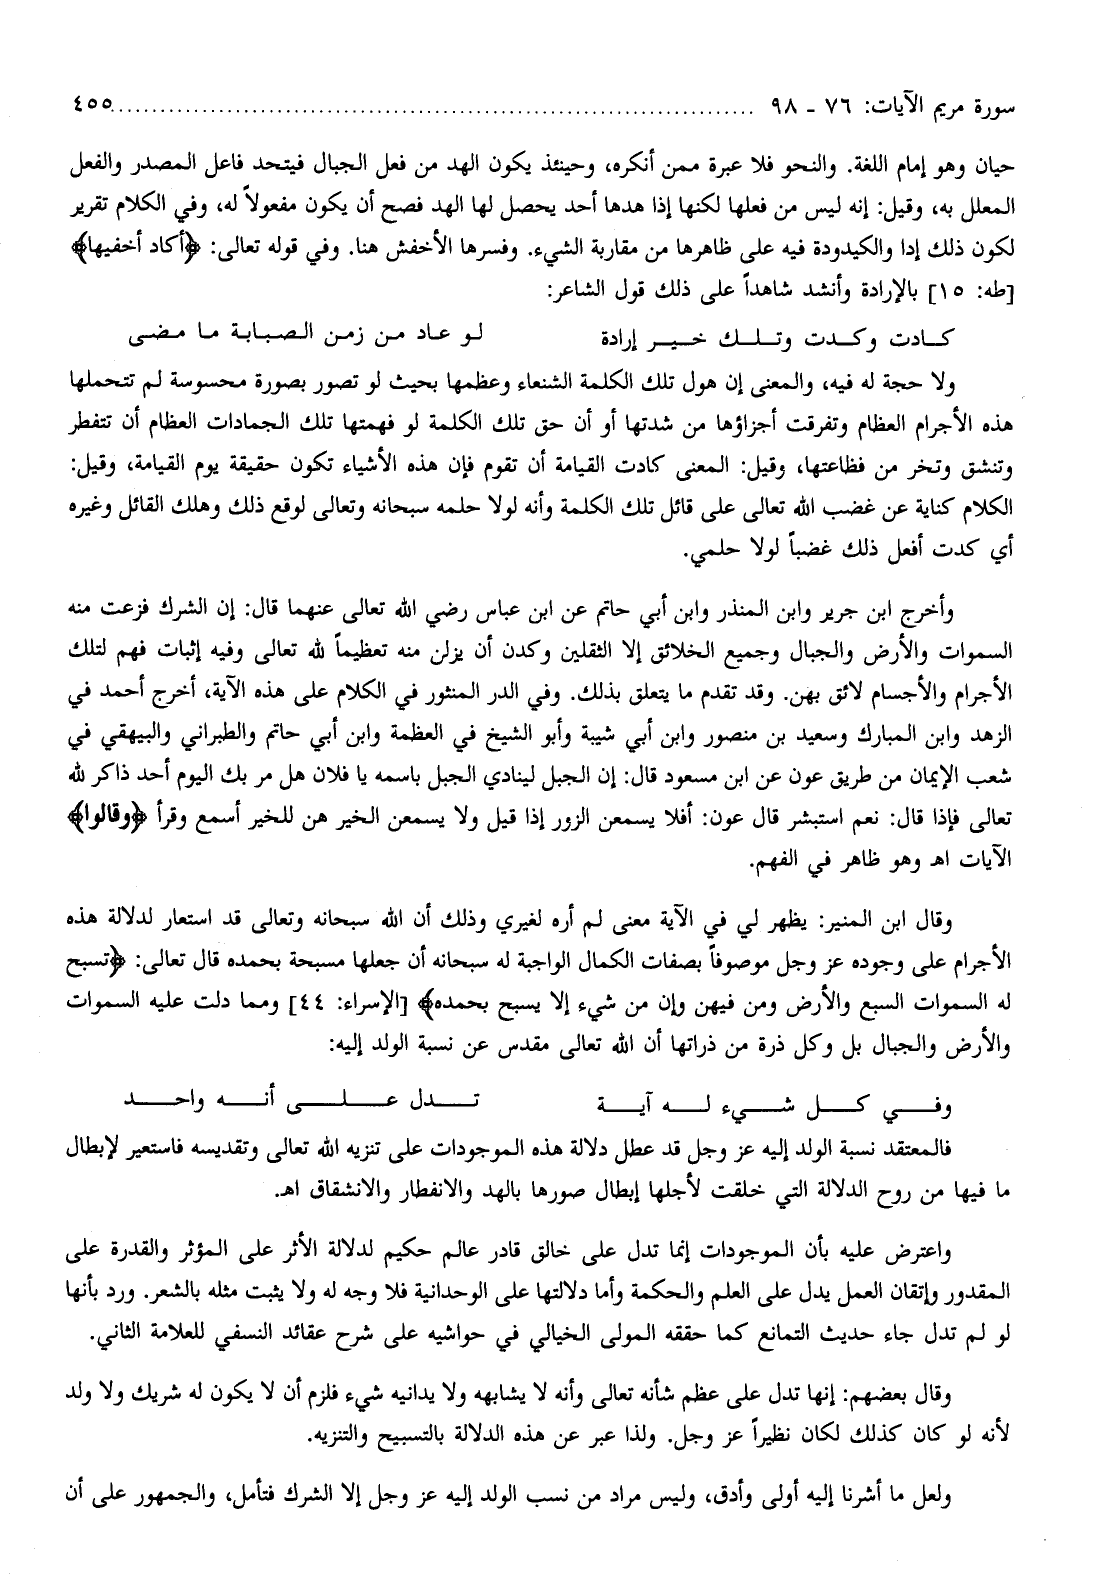 سورة مريم الآيات: ٧٦ - ٩٨ ................................................................................ ٤٥٥
حيان وهو إمام اللغة. والنحو فلا عبرة ممن أنكره، وحينئذ يكون الهد من فعل الجبال فيتحد فاعل المصدر والفعل
المعلل به، وقيل: إنه ليس من فعلها لكنها إذا هدها أحد يحصل لها الهد فصح أن يكون مفعولاً له، وفي الكلام تقرير
لكون ذلك إدا والكيدودة فيه على ظاهرها من مقاربة الشيء. وفسرها الأخفش هنا. وفي قوله تعالى: ﴿أكاد أخفيها﴾
[طه: ١٥] بالإرادة وأنشد شاهداً على ذلك قول الشاعر:
كـادت وكـدت وتـلـك خـيـر إرادة لو عاد مـن زمـن الـصـبـابـة مـا مـضـى
ولا حجة له فيه، والمعنى إن هول تلك الكلمة الشنعاء وعظمها بحيث لو تصور بصورة محسوسة لم تتحملها
هذه الأجرام العظام وتفرقت أجزاؤها من شدتها أو أن حق تلك الكلمة لو فهمتها تلك الجمادات العظام أن تتفطر
وتنشق وتخر من فظاعتها، وقيل: المعنى كادت القيامة أن تقوم فإن هذه الأشياء تكون حقيقة يوم القيامة، وقيل:
الكلام كناية عن غضب الله تعالى على قائل تلك الكلمة وأنه لولا حلمه سبحانه وتعالى لوقع ذلك وهلك القائل وغيره
أي كدت أفعل ذلك غضباً لولا حلمي.
وأخرج ابن جرير وابن المنذر وابن أبي حاتم عن ابن عباس رضي الله تعالى عنهما قال: إن الشرك فزعت منه
السموات والأرض والجبال وجميع الخلائق إلا الثقلين وكدن أن يزلن منه تعظيماً لله تعالى وفيه إثبات فهم لتلك
الأجرام والأجسام لائق بهن. وقد تقدم ما يتعلق بذلك. وفي الدر المنثور في الكلام على هذه الآية، أخرج أحمد في
الزهد وابن المبارك وسعيد بن منصور وابن أبي شيبة وأبو الشيخ في العظمة وابن أبي حاتم والطبراني والبيهقي في
شعب الإيمان من طريق عون عن ابن مسعود قال: إن الجبل لينادي الجبل باسمه يا فلان هل مر بك اليوم أحد ذاكر لله
تعالى فإذا قال: نعم استبشر قال عون: أفلا يسمعن الزور إذا قيل ولا يسمعن الخير هن للخير أسمع وقرأ ﴿وقالوا﴾
الآيات اهـ وهو ظاهر في الفهم.
وقال ابن المنير: يظهر لي في الآية معنى لم أره لغيري وذلك أن الله سبحانه وتعالى قد استعار لدلالة هذه
الأجرام على وجوده عز وجل موصوفاً بصفات الكمال الواجبة له سبحانه أن جعلها مسبحة بحمده قال تعالى: ﴿تسبح
له السموات السبع والأرض ومن فيهن وإن من شيء إلا يسبح بحمده﴾ [الإسراء: ٤٤] ومما دلت عليه السموات
والأرض والجبال بل وكل ذرة من ذراتها أن الله تعالى مقدس عن نسبة الولد إليه:
وفـي كـل شـيء لـه آيـة تـدل عـلـى أنـه واحـد
فالمعتقد نسبة الولد إليه عز وجل قد عطل دلالة هذه الموجودات على تنزيه الله تعالى وتقديسه فاستعير لإبطال
ما فيها من روح الدلالة التي خلقت لأجلها إبطال صورها بالهد والانفطار والانشقاق اهـ.
واعترض عليه بأن الموجودات إنما تدل على خالق قادر عالم حكيم لدلالة الأثر على المؤثر والقدرة على
المقدور وإتقان العمل يدل على العلم والحكمة وأما دلالتها على الوحدانية فلا وجه له ولا يثبت مثله بالشعر. ورد بأنها
لو لم تدل جاء حديث التمانع كما حققه المولى الخيالي في حواشيه على شرح عقائد النسفي للعلامة الثاني.
وقال بعضهم: إنها تدل على عظم شأنه تعالى وأنه لا يشابهه ولا يدانيه شيء فلزم أن لا يكون له شريك ولا ولد
لأنه لو كان كذلك لكان نظيراً عز وجل. ولذا عبر عن هذه الدلالة بالتسبيح والتنزيه.
ولعل ما أشرنا إليه أولى وأدق، وليس مراد من نسب الولد إليه عز وجل إلا الشرك فتأمل، والجمهور على أن